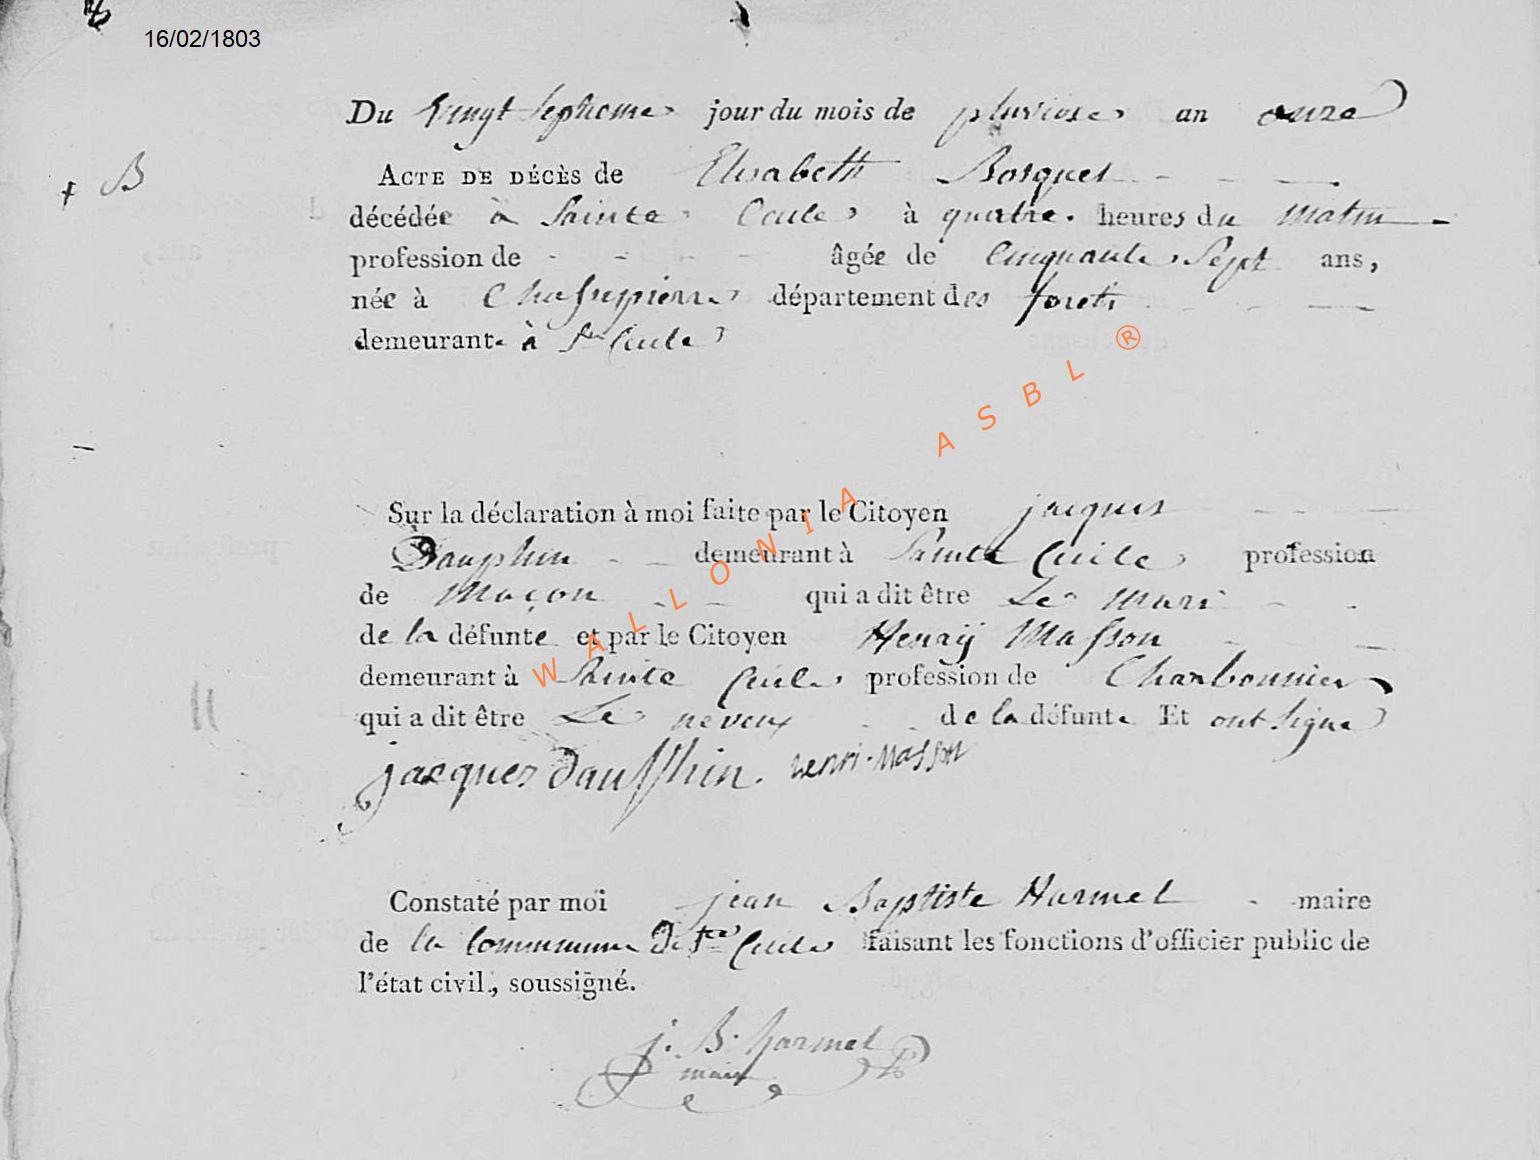 16/02/1803
Du Vingt septieme jour du mois de pluviose an onze
ACTE DE DÉCÈS de Elisabeth Bosquet
+ B
décédée à Sainte Cecile à quatre heures du matin
profession de âgée de Cinquante Sept ans,
née à Chassepierre département des forets
demeurante à Ste Cecile
Sur la déclaration à moi faite par le Citoyen jacques
Dauphin demeurant à Sainte Cecile profession
de Maçon qui a dit être Le mari
de la défunte et par le Citoyen Henrÿ Masson
demeurant à Sainte Cecile profession de Charbonnier
qui a dit être Le neveux de la défunte Et ont signe
jacques dauphin. henri-Masson
WALLONIA ASBL ®
Constaté par moi jean Baptiste Harmel maire
de la Commune De Ste Cecile faisant les fonctions d'officier public de
l'état civil, soussigné.
j. B. harmel
maire